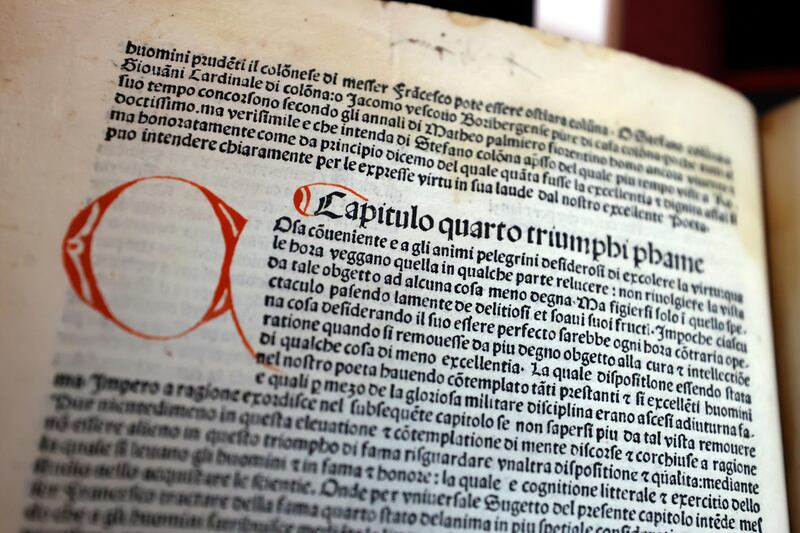 huomini prudẽti il colõnese di messer Frãcesco pote essere ostiara colõna. O Stefano colõna
Giouãni Cardinale di colõna: o Jacomo vescouo Boribergense pure di casa colõna
suo tempo concorsono secondo gli annali di Matheo palmiero fiorentino homo ancora
doctissimo. ma verisimile e che intenda di Stefano colõna apsso del quale piu tempo visse a
ma honoratamente come da principio dicemo del quale quãta fusse la excellentia ⁊ dignita assai si
puo intendere chiaramente per le expresse virtu in sua laude dal nostro excellente Poeta.
Capitulo quarto triumphi phame
Osa cõueniente e a gli animi pelegrini desiderosi di excolere la virtu: qua
le hora veggano quella in qualche parte relucere: non riuolgiere la vista
da tale obgetto ad alcuna cosa meno degna. Ma figiersi solo ĩ quello spe
ctaculo pasendo lamente de delitiosi et soaui suoi fruct. Impoche ciascu
na cosa desiderando il suo essere perfecto sarebbe ogni hora cõtraria ope
ratione quando si remouesse da piu degno obgetto alla cura ⁊ intellectiõe
di qualche cosa di meno excellentia. La quale dispositlone essendo stata
nel nostro poeta hauendo cõtemplato tãti prestanti ⁊ si excellẽti huomini
e quali p mezo de la gloriosa militare disciplina erano ascesi adiuturna fa
ma. Impero a ragione exordisce nel subsequẽte capitolo se non sapersi piu da tal vista remouere
Pur nientedimeno in questa eleuatione ⁊ cõtemplatione di mente discorse ⁊ corchiuse a ragione
nõ essere alieno in questo triompho di fama risguardare vnaltra dispositione ⁊ qualita: mediante
la quale si leuano gli huomini ⁊ in fama ⁊ honore: la quale e cognitione litterale ⁊ exercitio dello
studio nello acquistare le scientie. Onde per vniuersale Sugetto del presente capitolo intẽde mes
ser Francesco tractare della fama quarto stato delanima in piu spetiale
do che a gli huomini